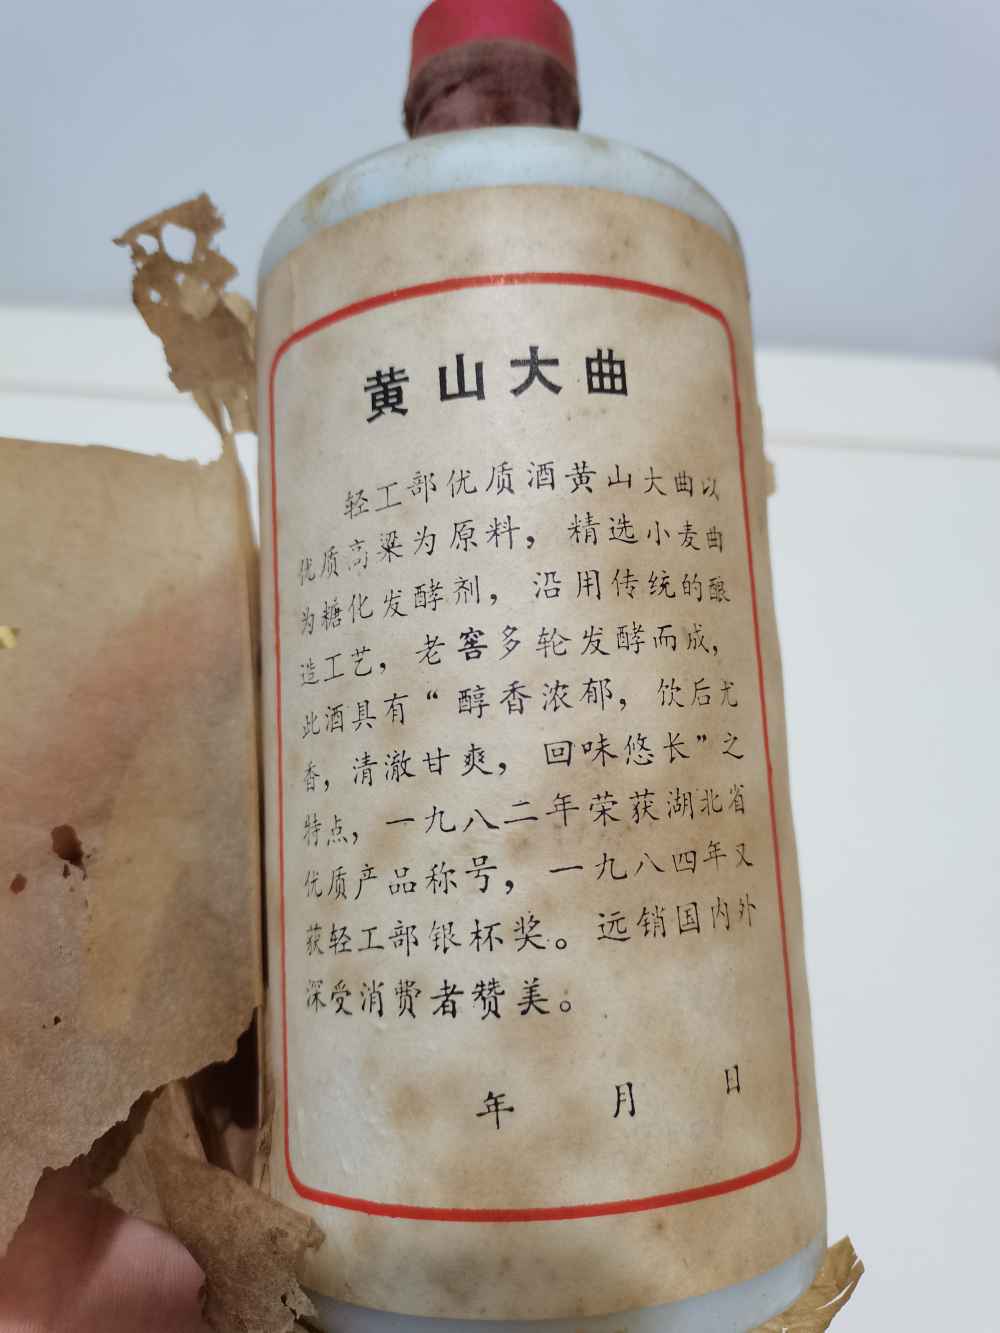 黄山大曲
轻工部优质酒黄山大曲以
优质高粱为原料，精选小麦曲
为糖化发酵剂，沿用传统的酿
造工艺，老窖多轮发酵而成，
此酒具有“醇香浓郁，饮后尤
香，清澈甘爽，回味悠长”之
特点，一九八二年荣获湖北省
优质产品称号，一九八四年又
获轻工部银杯奖。远销国内外
深受消费者赞美。
年 月 日